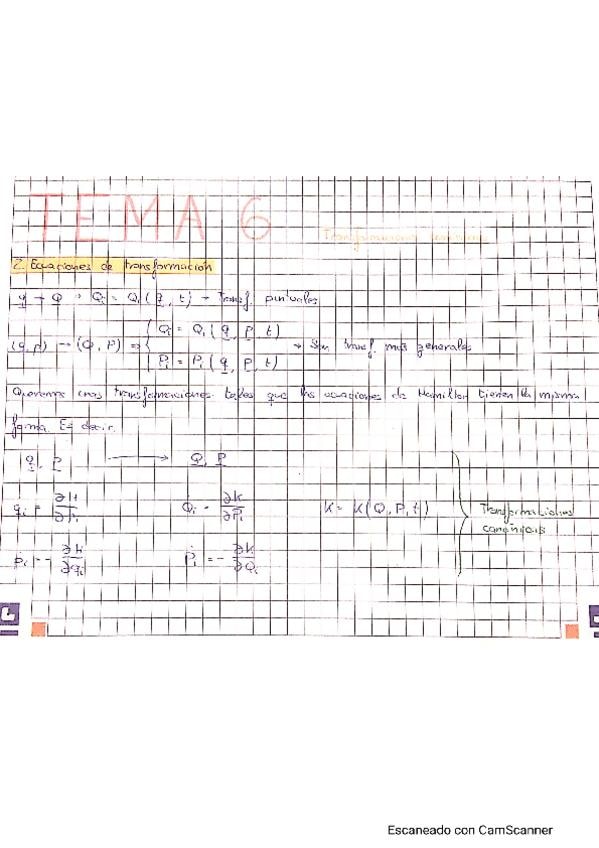 TEMA 6
Transformaciones canónicas
2. Ecuaciones de transformación
q → Q ⇒ Qi = Qi (q, t) → Transf. puntuales
(q, p) → (Q, P) ⇒ { Qi = Qi (q, p, t)
Pi = Pi (q, p, t) → Son transf. más generales
Queremos unas transformaciones tales que las ecuaciones de Hamilton tienen la misma
forma. Es decir:
q, p → Q, P
q̇i = ∂H/∂pi Q̇i = ∂K/∂Pi K = K(Q, P, t) } Transformaciones
canónicas
ṗi = - ∂H/∂qi Ṗi = - ∂K/∂Qi
Escaneado con CamScanner